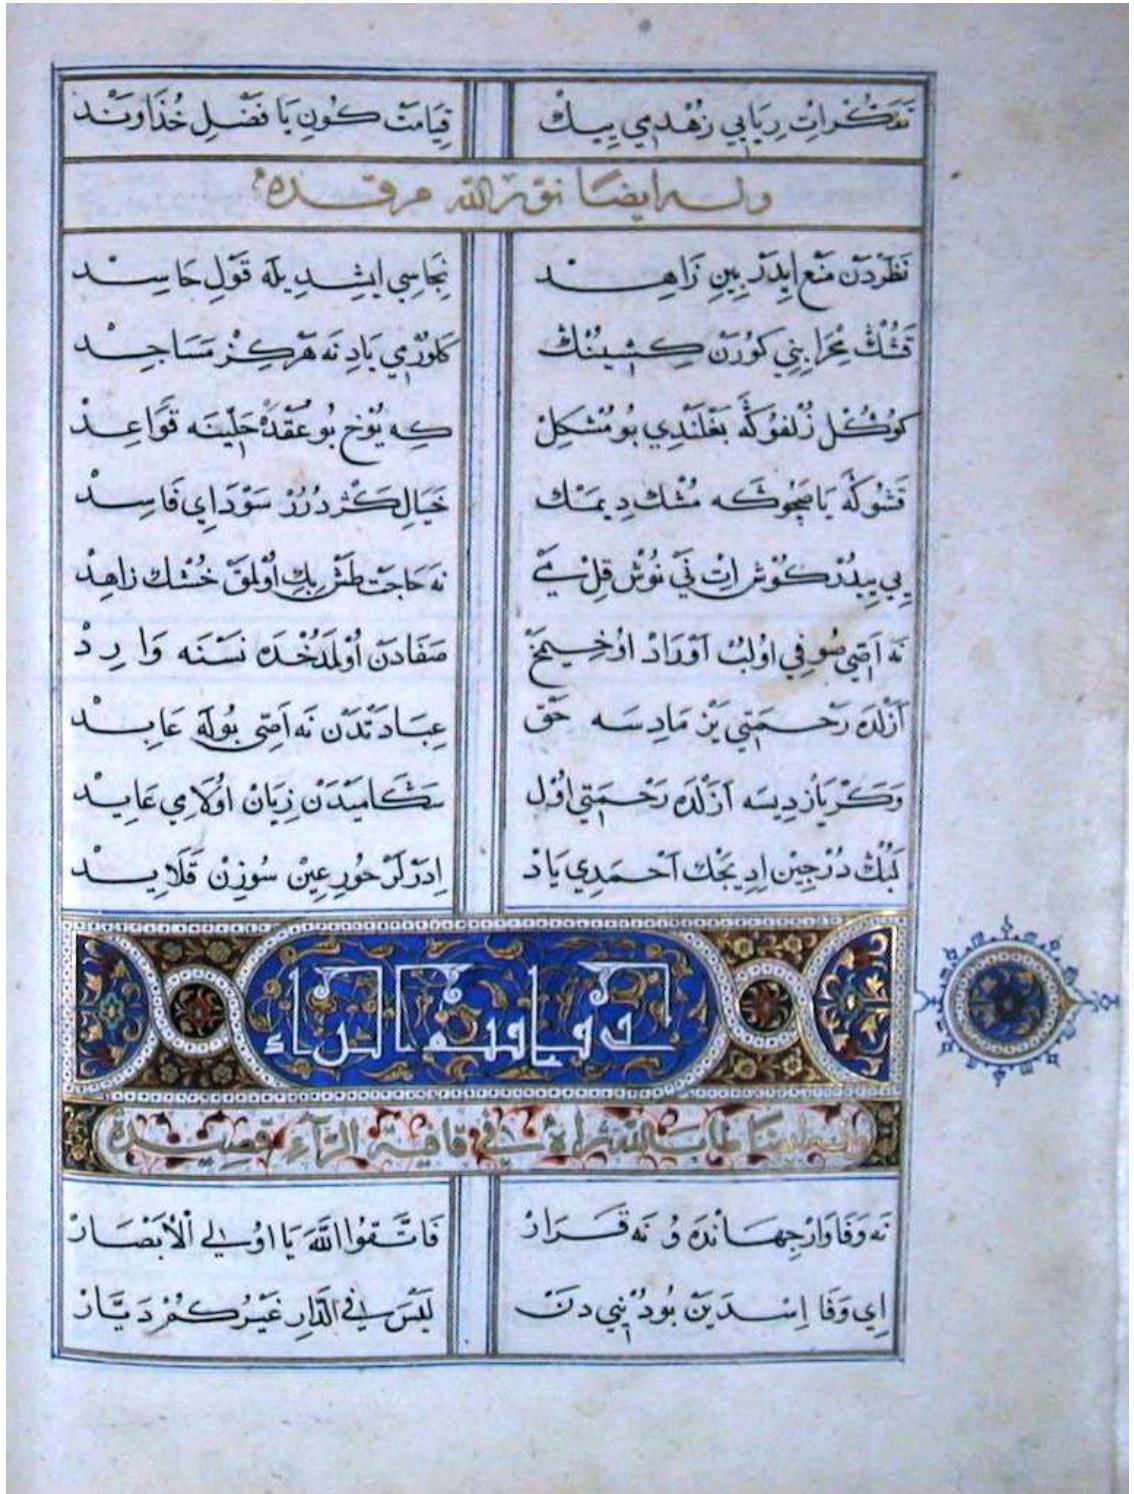 قِيَامَتْ كُونِ يَا فَضْلِ خُذَاوَنْدْ
وله ايضًا نوّر الله مرقده
نَظَرْدَنْ مَنْع اِيدَرْ بِينِ زَاهِدْ
نِجَاسِي ايشِدِيلَه قَوْلِ حَاسِدْ
قَشُكْ مِحْرَابِنِي كَوُرَنْ كِشِينُنْكْ
كَلُورْمِي يَادِنَه هَرْكِزْ مَسَاجِدْ
كَوُكُلْ زُلْفُوكَهْ بَغْلَنْدِي بُو مُشْكِلْ
كِه يُوْخ بُو عُقْدَهْ حَلِّينَه قَوَاعِدْ
قَشُوكَهْ يَا صَچُوكَه مُشْك دِيمَكْ
خَيَالِ كَژْدُرُرْ سَوْدَايِ فَاسِدْ
نَه حَاجَتْ طَشْ بِكِ اُوْلمَقْ خُشْك زاهِدْ
نَه اَصِّي صُوفِي اوُلُبْ اَوْرَادْ اوُخِيمَخْ
صَفَادَنْ اُوْلمَدُخْدَه نَسْنَه وَارِدْ
اَزَلْدَه رَحْمَتِي يَزْمَادِسَه حَقْ
عِبَادَتْدَنْ نَه اَصِّي بُولَه عَابِدْ
وَكَرْ يَازْدِيسَه اَزَلْدَه رَحْمَتِي اوُلْ
سَكَا مَيْدَنْ زِيَانْ اوُلَامِي عَايِدْ
لَبُكْ دُرْجِينْ اِدِيجَكْ اَحْمَدِي يَادْ
اِدَرْلَرْ حُورِ عِينْ سُوزِنْ قَلَايِدْ
حرف قافية الراء
وله ايضًا طاب الله ثراه في قافية الرّآء قصيدة
نَه وَفَا وَارْ جِهَانْدَه وُ نَه قَرَارْ
فَاتَّقُوا اللّٰهَ يَا اوُلِي الْاَبْصَارْ
اِي وَفَا اِسْدَيَنْ بُو دُنْيِي دَنْ
لَيْسَ فِي الدَّارِ غَيْرُكُمْ دَيَّارْ